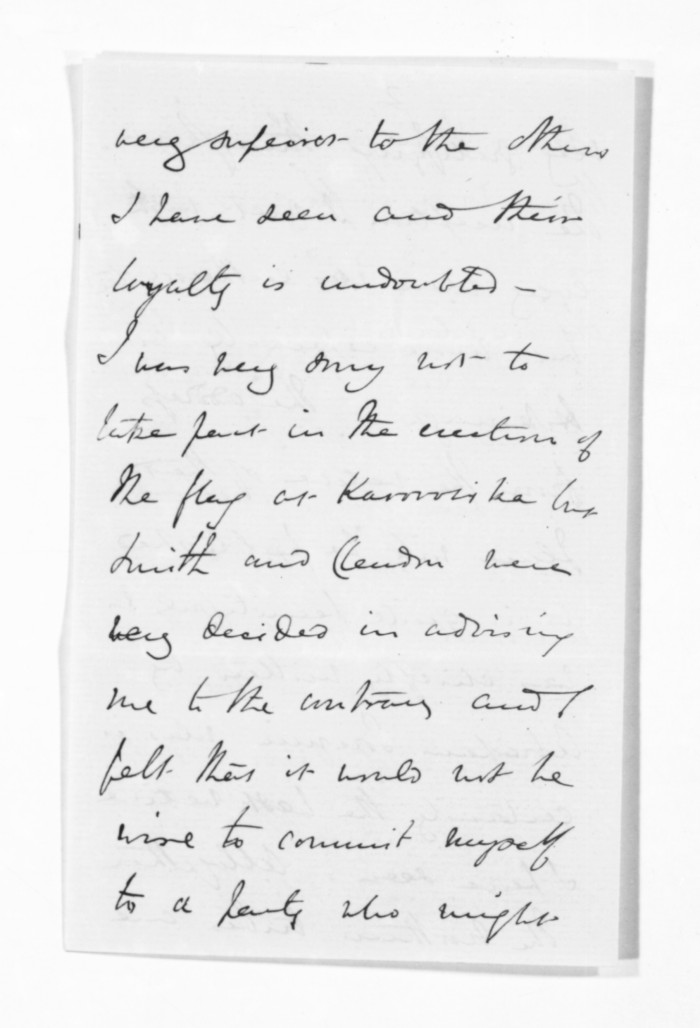 very superior to the others
I have seen and their
loyalty is undoubted –
I was very sorry not to
take part in the erection of
the flag at but
Smith and Clendon were
very decided in advising
me to the contrary and I
felt that it would not be
wise to commit myself
to a party who might